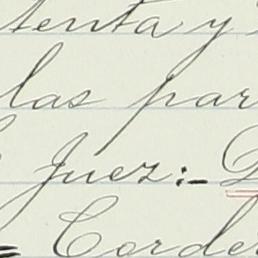 tenta y
las par
Juez:-
Corde